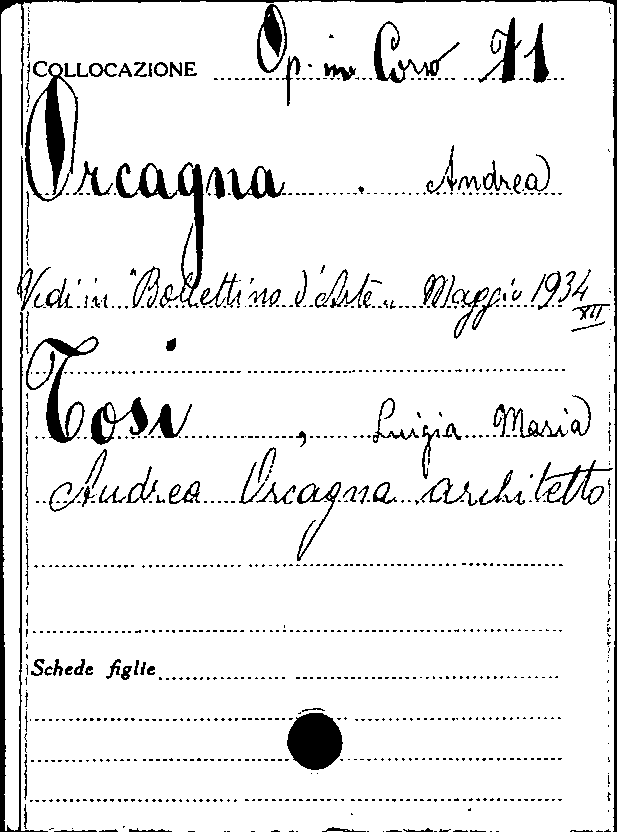 COLLOCAZIONE Op. in Corso 71
Orcagna . Andrea
Vedi in "Bollettino d'Arte„ Maggio 1934
XII
Tosi , Luigia Maria
Andrea Orcagna architetto
Schede figlie